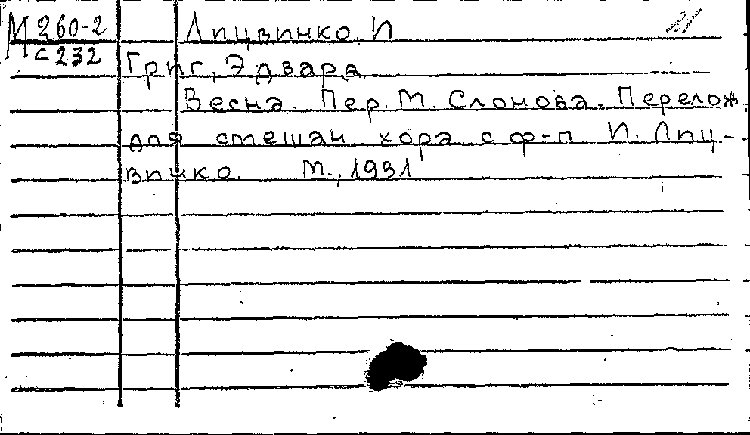 М 260-2 Липвинко, И
с 232 Григ, Эдвард
Весна. Пер. М. Слонова. Перелож.
для смешан хора с ф-п И. Лиц-
винко. М., 1931